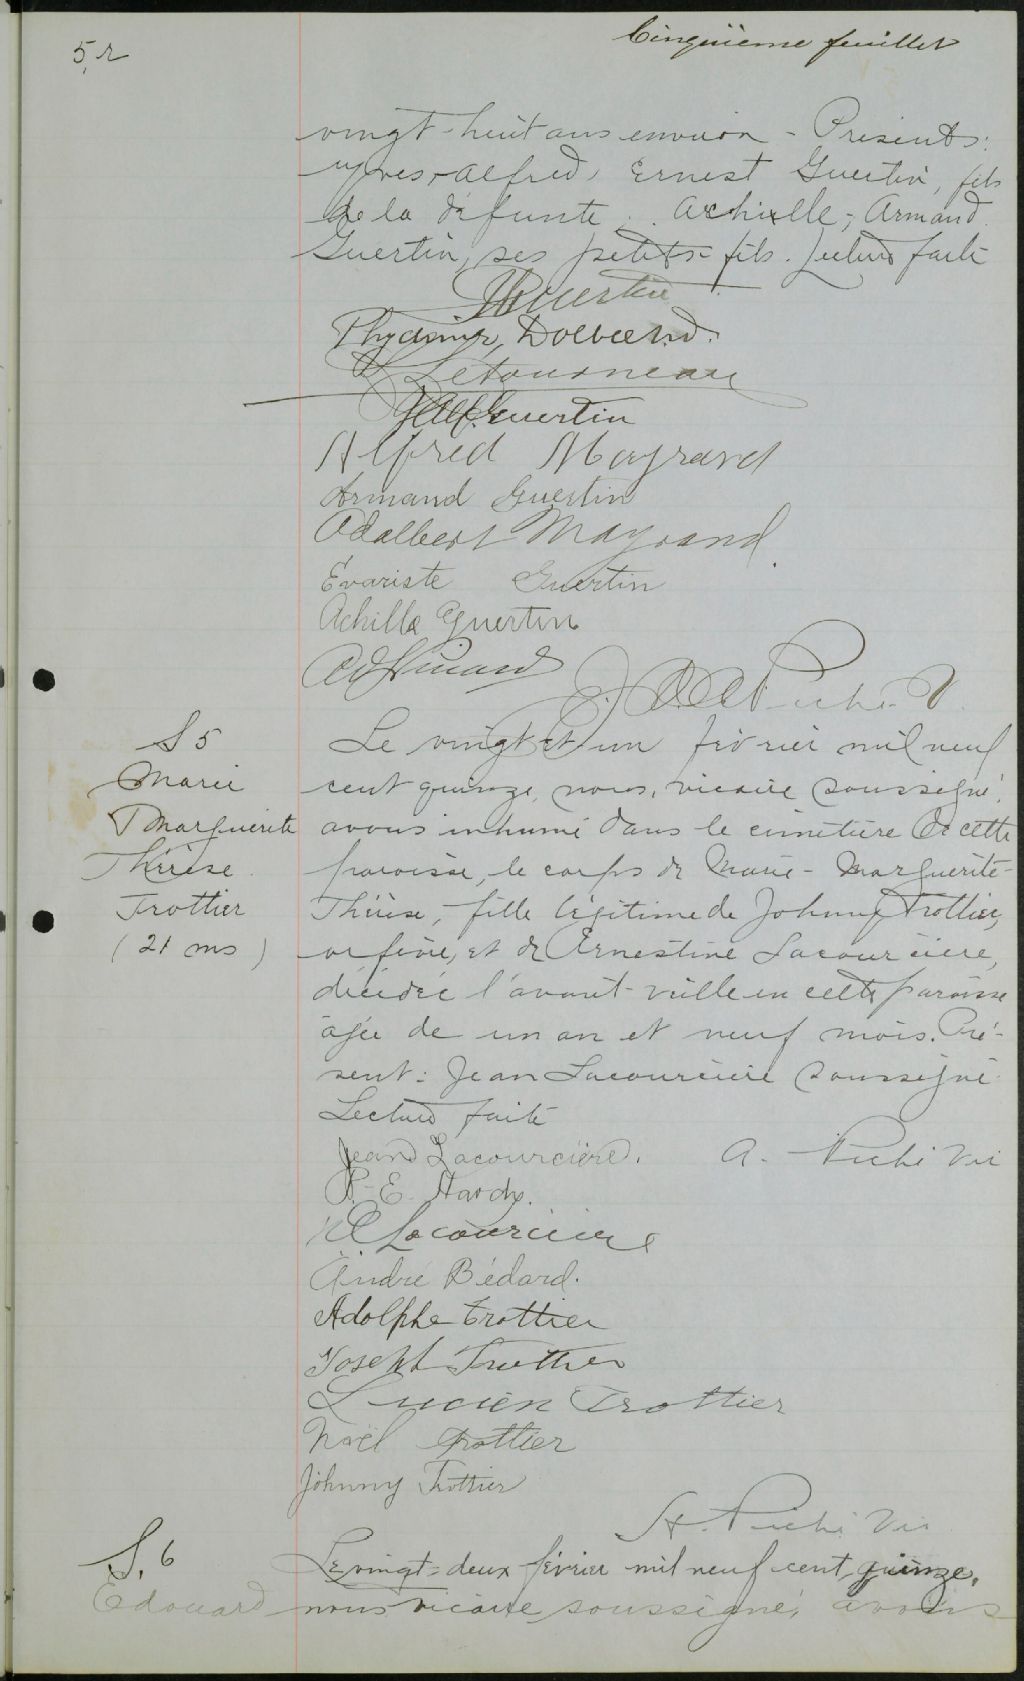 5, r
Cinquième feuillet
vingt-huit ans environ - Présents:
Yves-Alfred, Ernest Guertin, fils
de la défunte. Achille, Armand
Guertin, ses petits-fils. Lecture faite
Guertin
Dolbec
Letourneau
Guertin
Alfred Mayrand
Armand Guertin
Adalbert Mayrand.
Évariste Guertin
Achille Guertin
Piché V.
S 5
Marie
Marguerite
Thérèse
Trottier
(21 ms)
Le vingt et un février mil neuf
cent quinze, nous, vicaire soussigné,
avons inhumé dans le cimetière de cette
paroisse, le corps de Marie-Marguerite-
Thérèse, fille légitime de Johnny Trottier,
orfèvre, et de Ernestine Lacourcière,
décédée l'avant-veille en cette paroisse
âgée de un an et neuf mois. Pré-
sent: Jean Lacourcière soussigné.
Lecture faite
Jean Lacourcière. A. Piché Vic
R. E. Hardy.
Lacourcière
André Bédard.
Adolphe Trottier
Joseph Trottier
Lucien Trottier
Noël Trottier
Johnny Trottier
A. Piché Vic
S. 6
Edouard
Le vingt-deux février mil neuf cent quinze,
nous vicaire soussigné, avons